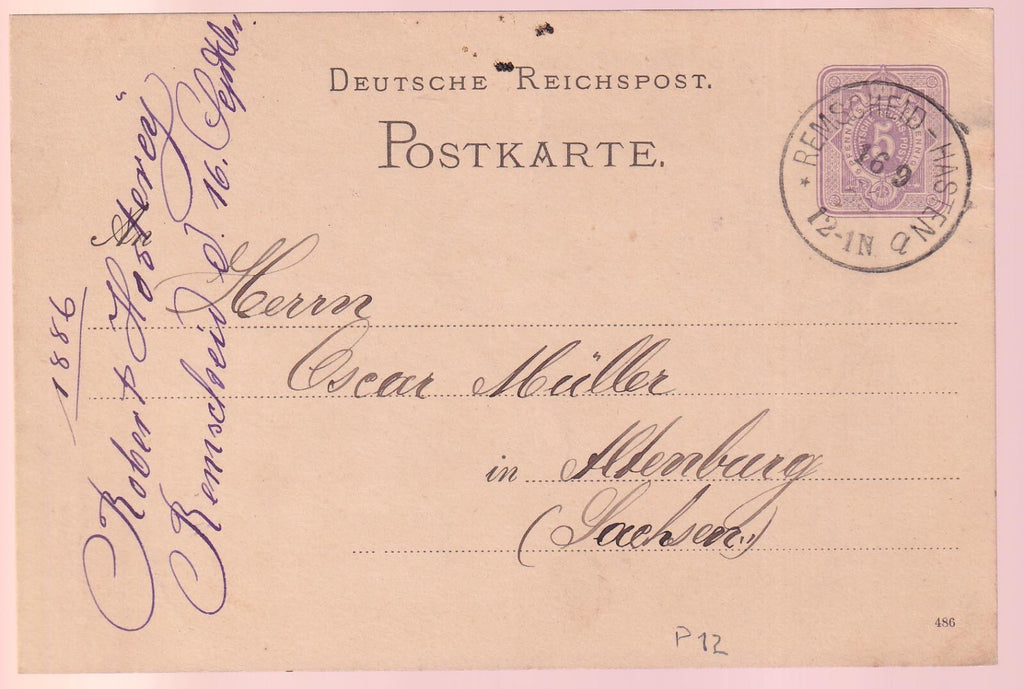 DEUTSCHE REICHSPOST.
POSTKARTE.
REMSCHEID-HASTEN
16 9
12-1N. a
5
An
Herrn
Oscar Müller
in Altenburg
(Sachsen.)
486
P12
Robert Hösterey
Remscheid d. 16. Septbr.
1886